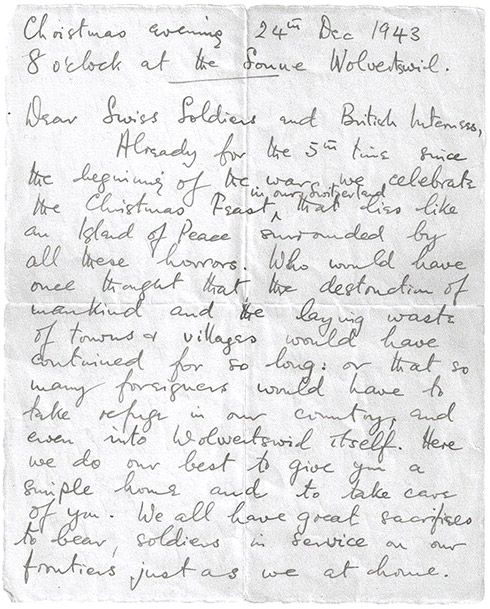 Christmas evening 24th Dec 1943
8 o'clock at the Sonne Wolvertswil.
Dear Swiss Soldiers and British Internees,
Already for the 5th time since
the beginning of the war, we celebrate
in our Switzerland
the Christmas Feast, that lies like
an Island of Peace surrounded by
all these horrors. Who would have
once thought that the destruction of
mankind and the laying waste
of towns & villages would have
continued for so long: or that so
many foreigners would have to
take refuge in our country, and
even into Wolvertswil itself. Here
we do our best to give you a
simple home and to take care
of you. We all have great sacrifises
to bear, soldiers in service on our
frontiers just as we at home.